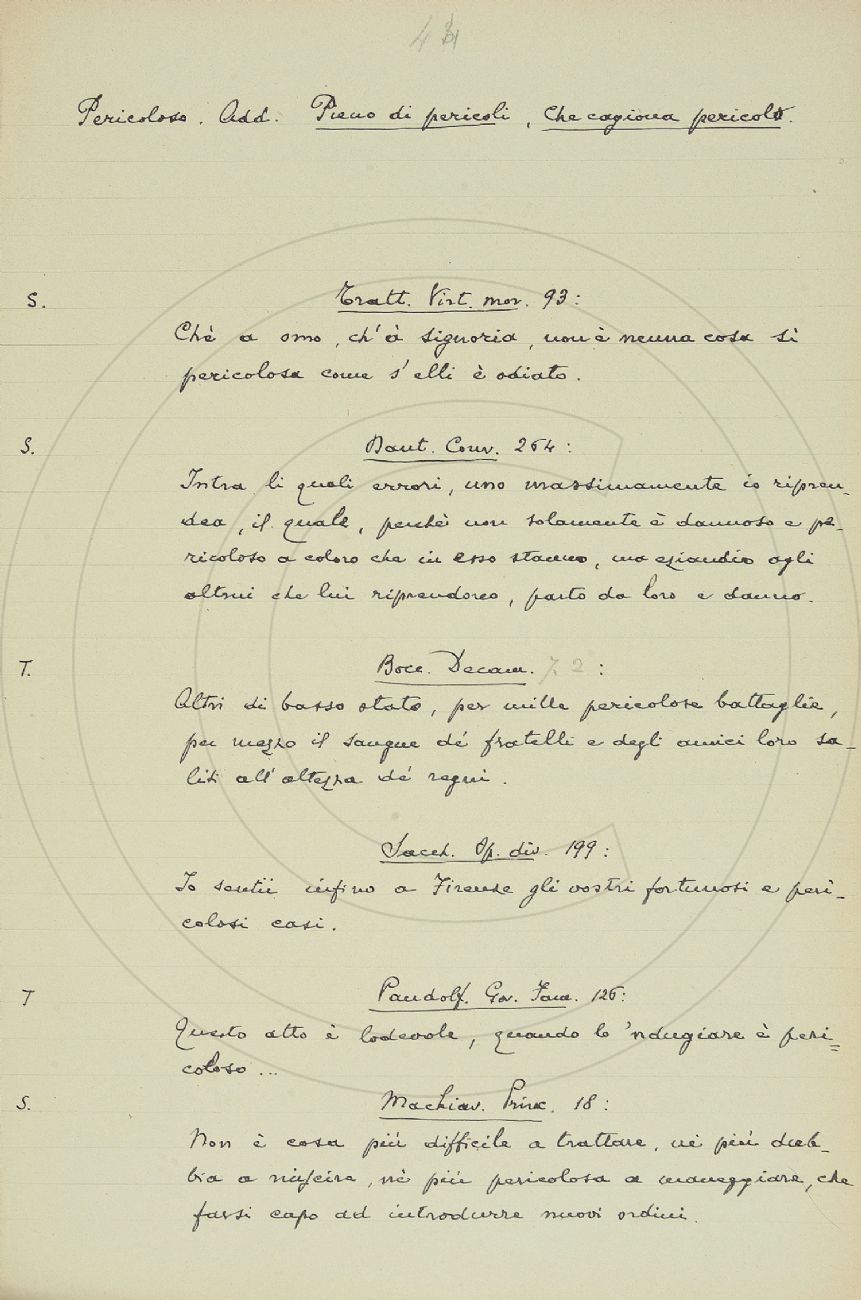 Pericoloso. Add. Pieno di pericoli, Che cagiona pericolo.
S. Tratt. Virt. mor. 93:
Chè a omo, ch'à signoria, non è neuna cosa sì
pericolosa come s'elli è odiato.
S. Dant. Conv. 264:
Intra li quali errori, uno massimamente io ripren-
dea, il quale, perchè non solamente è dannoso e pe-
ricoloso a coloro che in esso stanno, ma eziandio agli
altrui che lui riprendono, parto da loro e danno.
T. Bocc. Decam. 7. 2:
Altri di basso stato, per mille pericolose battaglie,
per mezzo il sangue de' fratelli e degli amici loro sa-
liti all'altezza de' regni.
Sacch. Op. div. 199:
Io sentii infino a Firenze gli vostri fortunosi e peri-
colosi casi.
T Pandolf. Gov. Fam. 126:
Questo atto è lodevole, quando lo 'ndugiare è peri-
coloso...
S. Machiav. Princ. 18:
Non è cosa più difficile a trattare, nè più dub-
bia a riuscire, nè più pericolosa a maneggiare, che
farsi capo ad introdurre nuovi ordini.